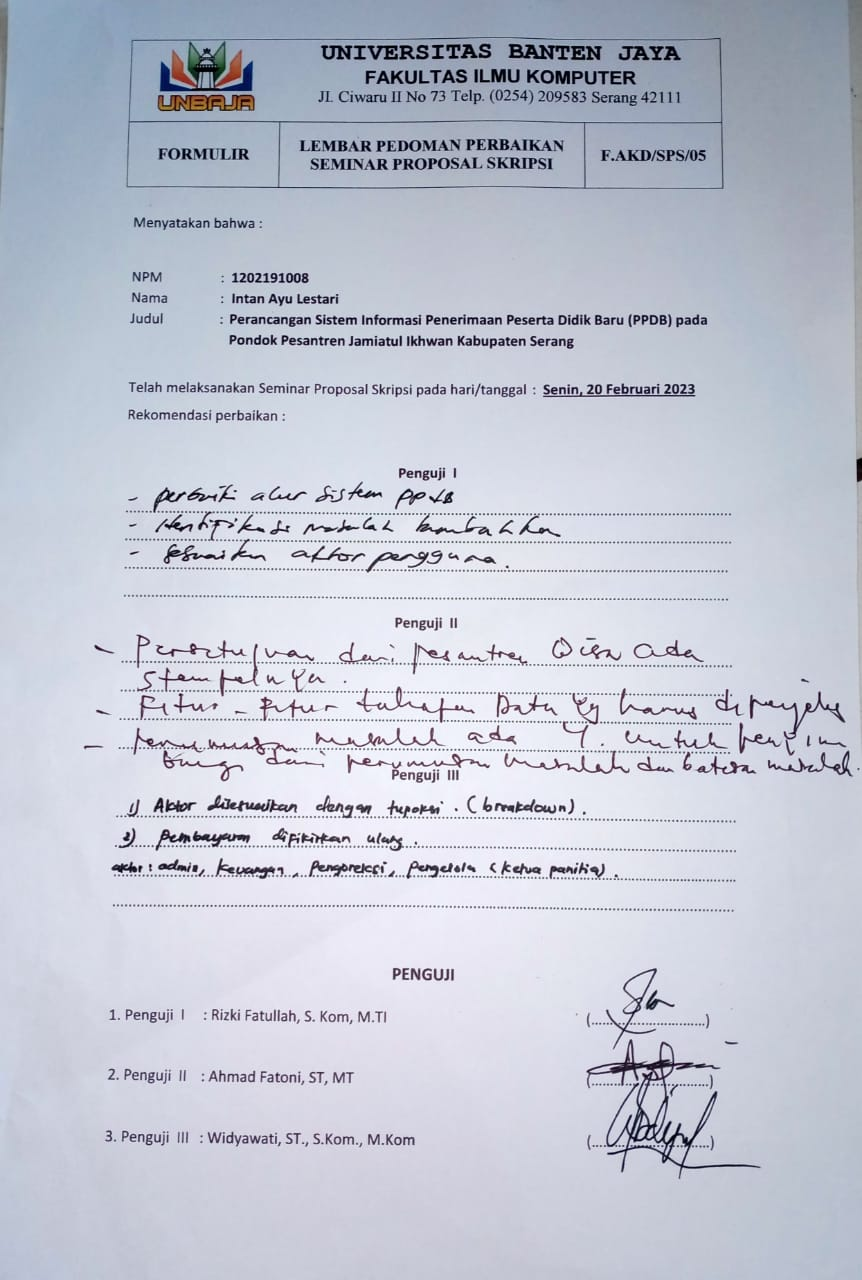 UNIVERSITAS BANTEN JAYA
FAKULTAS ILMU KOMPUTER
Jl. Ciwaru II No 73 Telp. (0254) 209583 Serang 42111
UNBAJA
FORMULIR
LEMBAR PEDOMAN PERBAIKAN
SEMINAR PROPOSAL SKRIPSI
F.AKD/SPS/05
Menyatakan bahwa :
NPM : 1202191008
Nama : Intan Ayu Lestari
Judul : Perancangan Sistem Informasi Penerimaan Peserta Didik Baru (PPDB) pada
Pondok Pesantren Jamiatul Ikhwan Kabupaten Serang
Telah melaksanakan Seminar Proposal Skripsi pada hari/tanggal : Senin, 20 Februari 2023
Rekomendasi perbaikan :
Penguji I
- perbaiki alur sistem PPDB
- Identifikasi masalah tambahkan
- sesuaikan aktor pengguna.
Penguji II
- Persetujuan dari pesantren ada
stempelnya.
- Fitur - fitur tahapan Data yg harus diperjelas
- perumusan masalah ada 4. untuk
dari perumusan masalah dan batasan masalah.
Penguji III
1) Aktor disesuaikan dengan tupoksi. (breakdown).
2) Pembayaran difikirkan ulang.
aktor : admin, keuangan, Pengoreksi, Pengelola (ketua panitia).
PENGUJI
1. Penguji I : Rizki Fatullah, S. Kom, M.TI (....................)
2. Penguji II : Ahmad Fatoni, ST, MT (....................)
3. Penguji III : Widyawati, ST., S.Kom., M.Kom (....................)